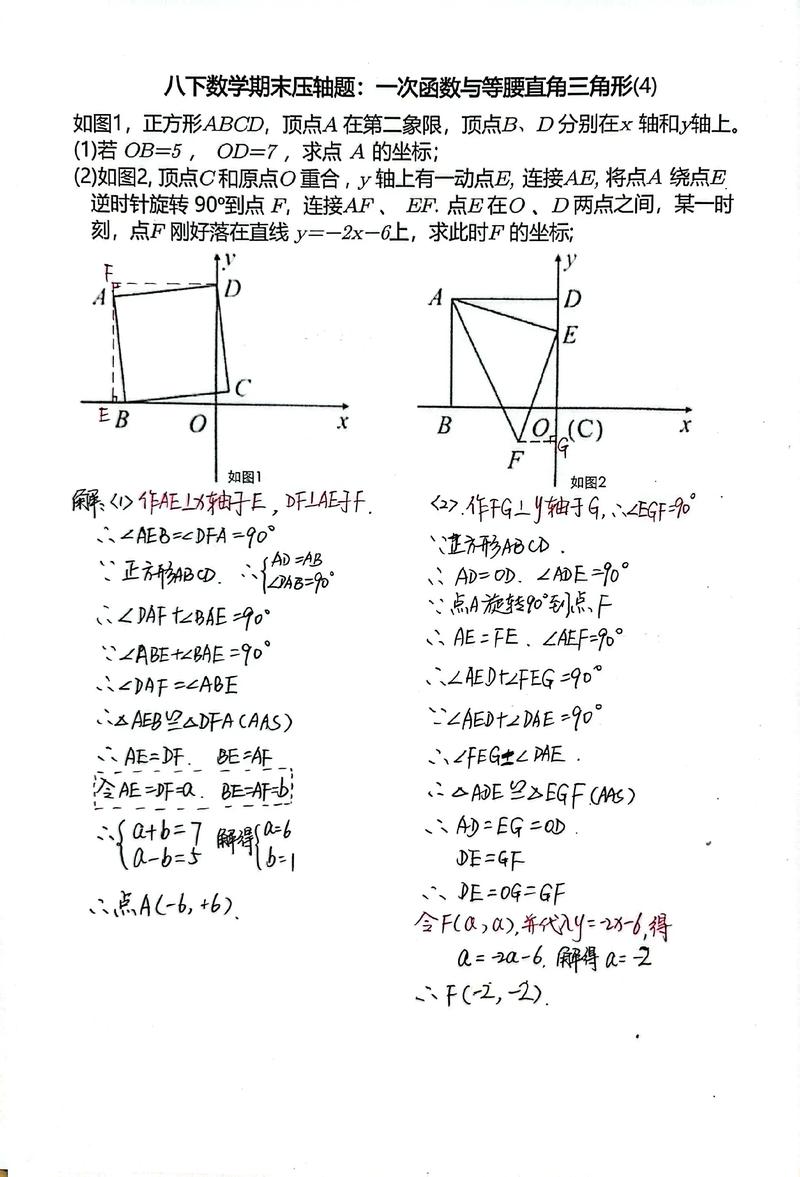 八下数学期末压轴题：一次函数与等腰直角三角形(4)
如图1，正方形ABCD，顶点A 在第二象限，顶点B、D 分别在x 轴和y轴上。
(1)若 OB=5 ， OD=7 ，求点 A 的坐标；
(2)如图2, 顶点C 和原点O 重合，y 轴上有一动点E, 连接AE, 将点A 绕点E
逆时针旋转 90°到点 F，连接AF 、 EF. 点E 在O 、D 两点之间，某一时
刻，点F 刚好落在直线 y=−2x−6上，求此时F 的坐标;
F
A
y
D
C
E
B
O
x
如图1
y
A
D
E
B
O
(C)
x
F
G
如图2
解:(1)作AE⊥x轴于E，DF⊥AE于F.
∴∠AEB=∠DFA=90°
∵正方形ABCD. ∴{AD=AB
∠DAB=90°
∴∠DAF+∠BAE=90°
∵∠ABE+∠BAE=90°
∴∠DAF=∠ABE
∴△AEB≌△DFA(AAS)
∴AE=DF. BE=AF
令AE=DF=a. BE=AF=b
∴{a+b=7 解得{a=6
a-b=5 b=1
∴点A(-6,+6).
(2).作FG⊥y轴于G,∴∠EGF=90°
∵正方形ABCD.
∴AD=OD. ∠ADE=90°
∵点A旋转90°到点F
∴AE=FE. ∠AEF=90°
∴∠AED+∠FEG=90°
∵∠AED+∠DAE=90°
∴∠FEG=∠DAE.
∴△ADE≌△EGF.(AAS)
∴AD=EG=OD.
DE=GF
∴DE=OG=GF
令F(a,a),并代入y=-2x-6,得
a=-2a-6. 解得a=-2
∴F(-2,-2).